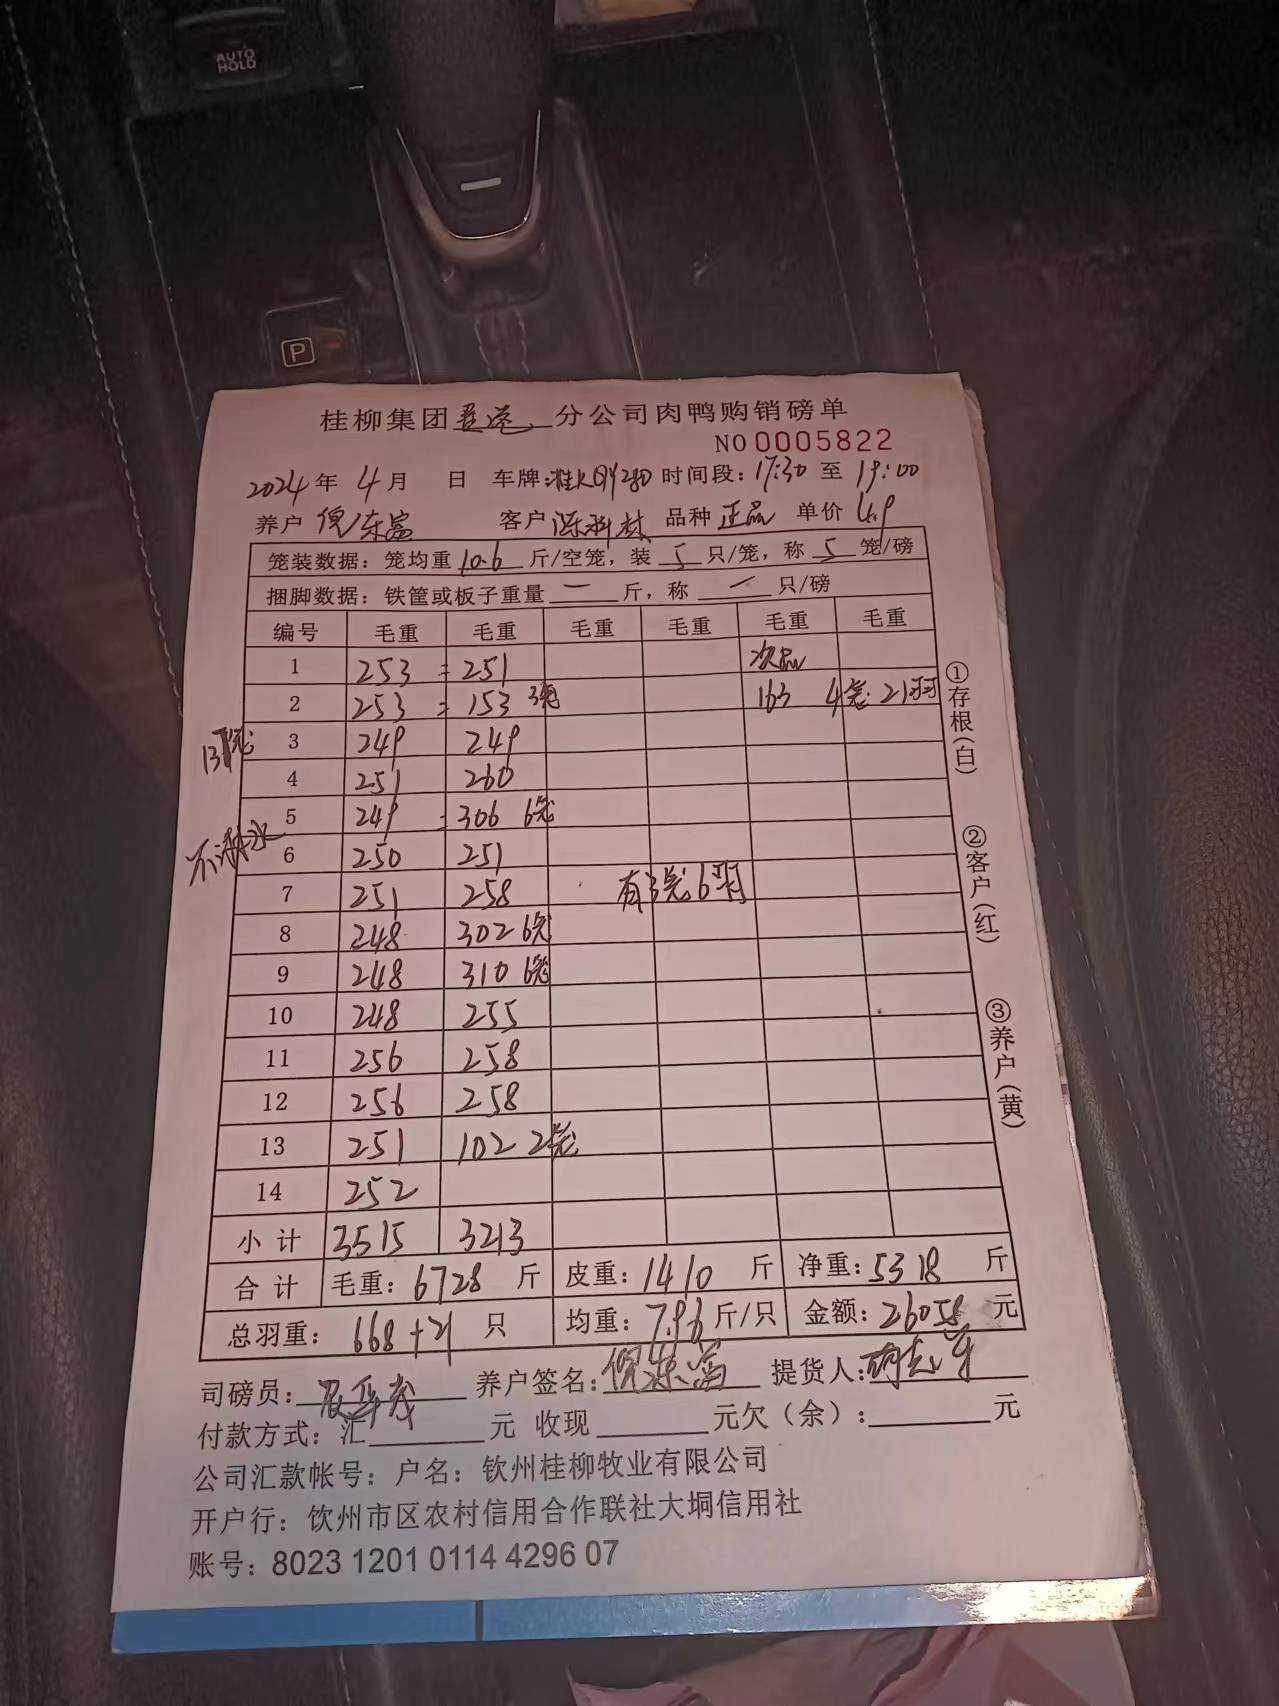 AUTO
HOLD
P
桂柳集团 分公司肉鸭购销磅单
NO 0005822
2024年 4月 日 车牌: 时间段: 17:30 至 19:00
养户 倪东富 客户 陈科林 品种 正品 单价 4.9
笼装数据: 笼均重 10.6 斤/空笼, 装 5 只/笼, 称 5 笼/磅
捆脚数据: 铁筐或板子重量 一 斤, 称 一 只/磅
编号 毛重 毛重 毛重 毛重 毛重 毛重
1 253 = 251 次品
2 253 = 153 3笼 163 4笼 21羽
3 249 249
4 251 260
5 249 = 306 6笼
6 250 251
7 251 258 有3笼6羽
8 248 302 6笼
9 248 310 6笼
10 248 255
11 256 258
12 256 258
13 251 102 2笼
14 252
小计 3515 3213
合计 毛重: 6728 斤 皮重: 1410 斤 净重: 5318 斤
总羽重: 668+21 只 均重: 7.96 斤/只 金额: 26058 元
司磅员: 养户签名: 倪东富 提货人:
付款方式: 汇 元 收现 元欠(余): 元
公司汇款帐号: 户名: 钦州桂柳牧业有限公司
开户行: 钦州市区农村信用合作联社大垌信用社
账号: 8023 1201 0114 4296 07
①存根(白)
②客户(红)
③养户(黄)